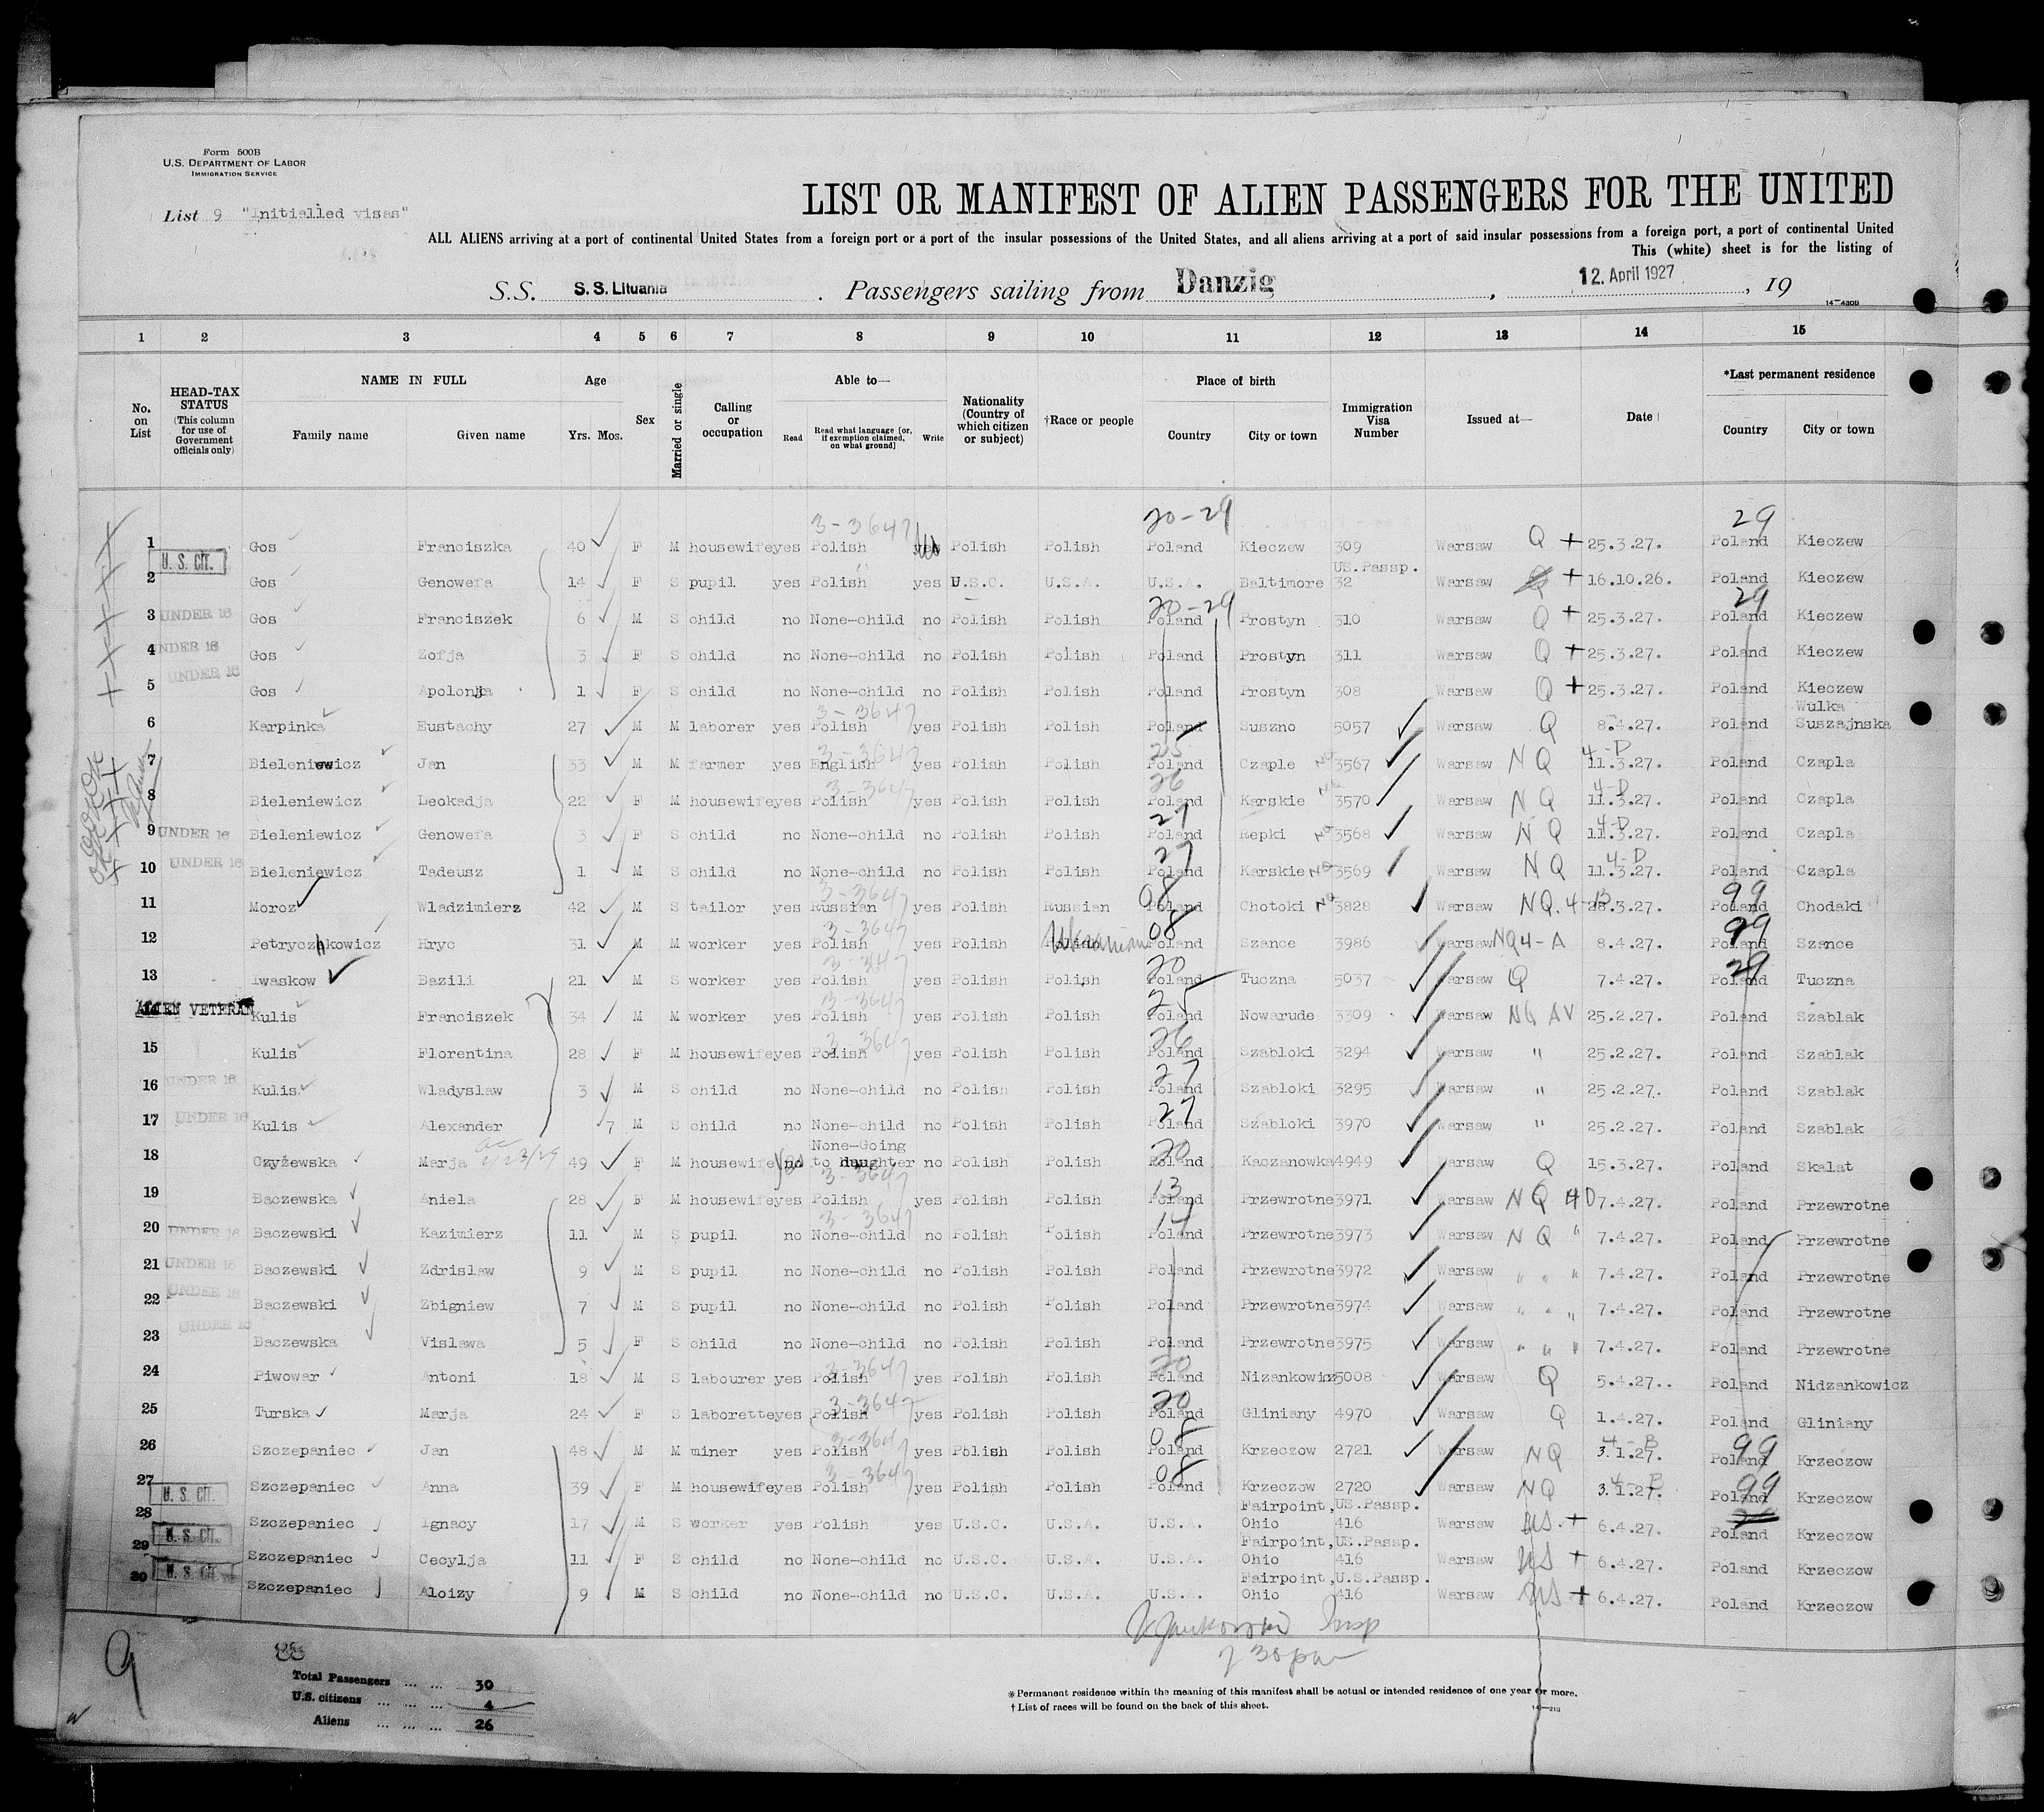 Form 500B
U.S. DEPARTMENT OF LABOR
IMMIGRATION SERVICE
List 9 "Initialled visas"
LIST OR MANIFEST OF ALIEN PASSENGERS FOR THE UNITED
ALL ALIENS arriving at a port of continental United States from a foreign port or a port of the insular possessions of the United States, and all aliens arriving at a port of said insular possessions from a foreign port, a port of continental United
This (white) sheet is for the listing of
S.S. S. S. Lituania . Passengers sailing from Danzig , 12. April 1927 , 19
14—430B
1 2 3 4 5 6 7 8 9 10 11 12 13 14 15
No. on List HEAD-TAX STATUS (This column for use of Government officials only) NAME IN FULL Family name Given name Age Yrs. Mos. Sex Married or single Calling or occupation Able to— Read Read what language [or, if exemption claimed, on what ground] Write Nationality (Country of which citizen or subject) †Race or people Place of birth Country City or town Immigration Visa Number Issued at— Date *Last permanent residence Country City or town
3-3647 20-29 29
1 Gos Franciszka 40 F M housewife yes Polish yes Polish Polish Poland Kieczew 309 Warsaw Q + 25.3.27. Poland Kieczew
U. S. CIT. US.Passp.
2 Gos Genowefa 14 F S pupil yes Polish yes U.S.C. U.S.A. U.S.A. Baltimore 32 Warsaw Q + 16.10.26. Poland Kieczew
20-29 29
3 UNDER 16 Gos Franciszek 6 M S child no None-child no Polish Polish Poland Prostyn 310 Warsaw Q + 25.3.27. Poland Kieczew
4 UNDER 16 Gos Zofja 3 F S child no None-child no Polish Polish Poland Prostyn 311 Warsaw Q + 25.3.27. Poland Kieczew
5 UNDER 16 Gos Apolonja 1 F S child no None-child no Polish Polish Poland Prostyn 308 Warsaw Q + 25.3.27. Poland Kieczew
3-3647 Wulka
6 Karpinka Eustachy 27 M M laborer yes Polish yes Polish Polish Poland Suszno 5057 Warsaw Q 8.4.27. Poland Suszajnska
3-3647 25 4-D
7 Bieleniewicz Jan 33 M M farmer yes English yes Polish Polish Poland Czaple NQ 3567 Warsaw N Q 11.3.27. Poland Czapla
3-3647 26 4-D
8 Bieleniewicz Leokadja 22 F M housewife yes Polish yes Polish Polish Poland Karskie NQ 3570 Warsaw N Q 11.3.27. Poland Czapla
27 4-D
9 UNDER 16 Bieleniewicz Genowefa 3 F S child no None-child no Polish Polish Poland Repki NQ 3568 Warsaw N Q 11.3.27. Poland Czapla
27 4-D
10 UNDER 16 Bieleniewicz Tadeusz 1 M S child no None-child no Polish Polish Poland Karskie NQ 3569 Warsaw N Q 11.3.27. Poland Czapla
3-3647 08 99
11 Moroz Wladzimierz 42 M S tailor yes Russian yes Polish Russian Poland Chotoki NQ 3828 Warsaw NQ. 4-B. 28.3.27. Poland Chodaki
3-3647 08 99
12 Petryczkowicz Hryc 31 M M worker yes Polish yes Polish Ukrainian Poland Szance 3986 Warsaw NQ 4-A 8.4.27. Poland Szance
3-347 20 29
13 Iwaskow Bazili 21 M S worker yes Polish yes Polish Polish Poland Tuczna 5037 Warsaw Q 7.4.27. Poland Tuczna
3-3647 25
ALIEN VETERAN Kulis Franciszek 34 M M worker yes Polish yes Polish Polish Poland Nowarude 3309 Warsaw NQ AV 25.2.27. Poland Szablak
3-3647 26
15 Kulis Florentina 28 F M housewife yes Polish yes Polish Polish Poland Szabloki 3294 Warsaw " 25.2.27. Poland Szablak
27
16 UNDER 16 Kulis Wladyslaw 3 M S child no None-child no Polish Polish Poland Szabloki 3295 Warsaw " 25.2.27. Poland Szablak
27
17 UNDER 16 Kulis Alexander 7 M S child no None-child no Polish Polish Poland Szabloki 3970 Warsaw " 25.2.27. Poland Szablak
None-Going 20
18 Czyżewska Marja 49 F M housewife no yes to daughter no Polish Polish Poland Kaczanowka 4949 Warsaw Q 15.3.27. Poland Skalat
3-3647 13
19 Baczewska Aniela 28 F M housewife yes Polish yes Polish Polish Poland Przewrotne 3971 Warsaw N Q 4D 7.4.27. Poland Przewrotne
3-3647 14
20 UNDER 16 Baczewski Kazimierz 11 M S pupil no None-child no Polish Polish Poland Przewrotne 3973 Warsaw N Q " 7.4.27. Poland Przewrotne
21 UNDER 16 Baczewski Zdrislaw 9 M S pupil no None-child no Polish Polish Poland Przewrotne 3972 Warsaw " " " 7.4.27. Poland Przewrotne
22 UNDER 16 Baczewski Zbigniew 7 M S pupil no None-child no Polish Polish Poland Przewrotne 3974 Warsaw " " " 7.4.27. Poland Przewrotne
23 UNDER 16 Baczewska Vislawa 5 F S child no None-child no Polish Polish Poland Przewrotne 3975 Warsaw " " " 7.4.27. Poland Przewrotne
3-3647 20
24 Piwowar Antoni 18 M S labourer yes Polish yes Polish Polish Poland Nizankowicz 5008 Warsaw Q 5.4.27.. Poland Nidzankowicz
3-3647 20
25 Turska Marja 24 F S laborette yes Polish yes Polish Polish Poland Gliniany 4970 Warsaw Q 1.4.27. Poland Gliniany
3-3647 08 4-B 99
26 Szczepaniec Jan 48 M M miner yes Polish yes Polish Polish Poland Krzeczow 2721 Warsaw NQ 3.1.27. Poland Krzeczow
3-3647 08 4-B 99
27 Szczepaniec Anna 39 F M housewife yes Polish yes Polish Polish Poland Krzeczow 2720 Warsaw NQ 3.1.27. Poland Krzeczow
U. S. CIT. Fairpoint, US.Passp.
28 Szczepaniec Ignacy 17 M S worker yes Polish yes U.S.C. U.S.A. U.S.A. Ohio 416 Warsaw US. + 6.4.27. Poland Krzeczow
U. S. CIT. Fairpoint, US.Passp.
29 Szczepaniec Cecylja 11 F S child no None-child no U.S.C. U.S.A. U.S.A. Ohio 416 Warsaw US + 6.4.27. Poland Krzeczow
U. S. CIT. Fairpoint, U.S.Passp.
30 Szczepaniec Aloizy 9 M S child no None-child no U.S.C. U.S.A. U.S.A. Ohio 416 Warsaw US + 6.4.27. Poland Krzeczow
Jankowski Insp
7 30 pm
9
Total Passengers ... ... 30
U.S. citizens ... ... ... 4
Aliens ... ... ... 26
* Permanent residence within the meaning of this manifest shall be actual or intended residence of one year or more.
† List of races will be found on the back of this sheet.
14—213